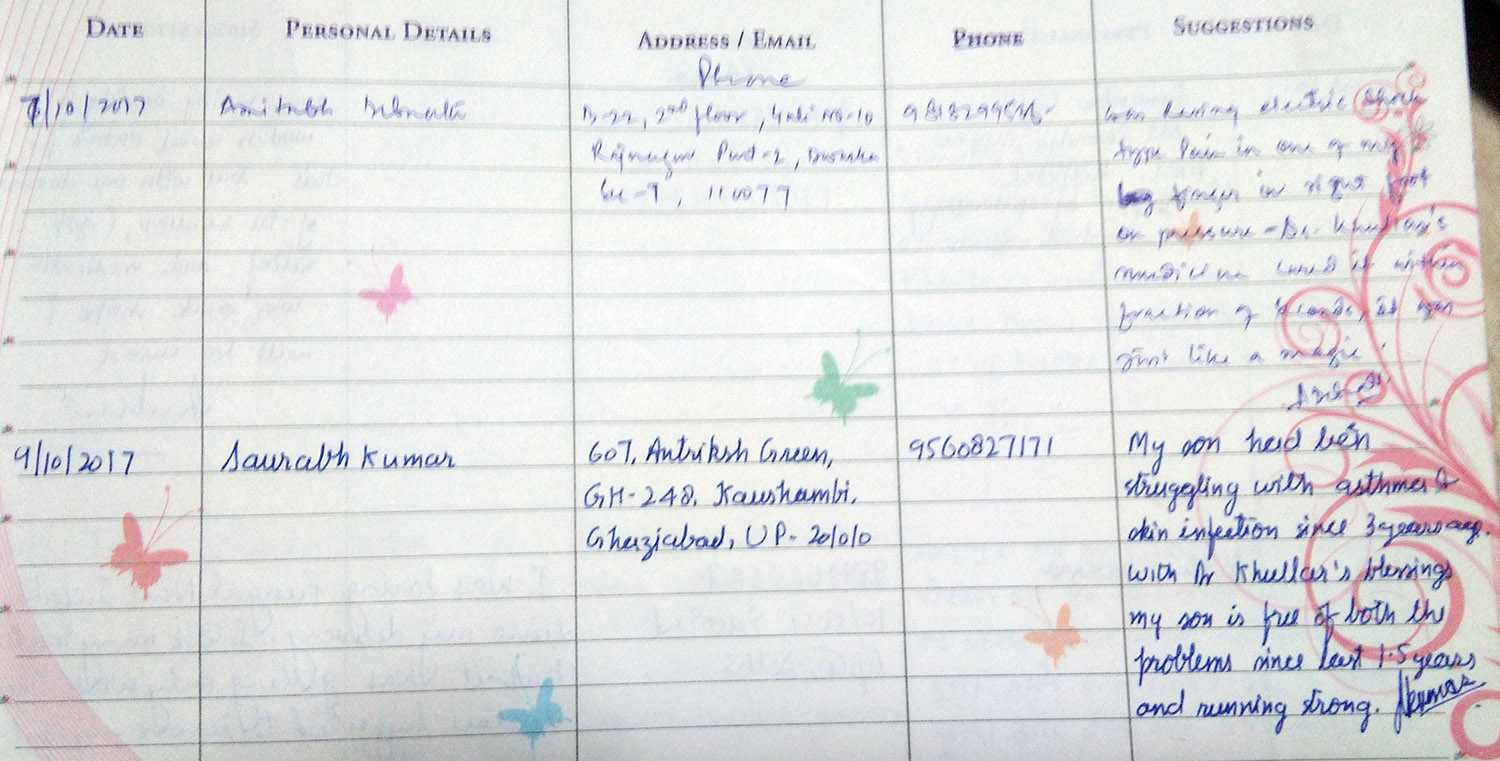 DATE PERSONAL DETAILS ADDRESS / EMAIL PHONE SUGGESTIONS
Phone
7/10/2017 Amitabh Debnath D-22, 2nd floor, Gali no-10 was having electric shock
Rajnagar Part-2, Dwarka type Pain in one of my
Sec-7, 110077 finger in right foot
on pressure - Dr. Khullar's
medicine cured it within
fraction of seconds, it was
just like a magic.
9/10/2017 Saurabh Kumar 607, Antriksh Green, 9560827171 My son had been
GH-248, Kaushambi, struggling with asthma &
Ghaziabad, UP-201010 skin infection since 3 years age.
with Dr Khullar's blessings
my son is free of both the
problems since last 1.5 years
and running strong. Skumar